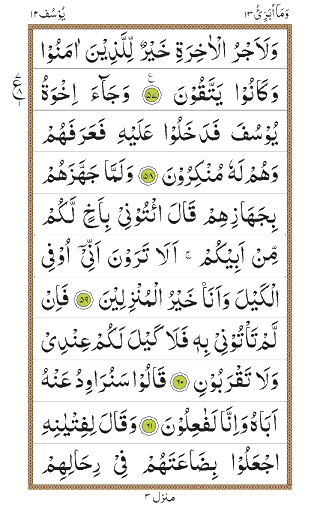 وَمَاۤ اُبَرِّئُ ١٣ یُوْسُف ١٢
وَلَاَجْرُ الْاٰخِرَةِ خَیْرٌ لِّلَّذِیْنَ اٰمَنُوْا
وَكَانُوْا یَتَّقُوْنَ ﴿٥٧﴾ ع وَجَآءَ اِخْوَةُ
ع ٨
یُوْسُفَ فَدَخَلُوْا عَلَیْهِ فَعَرَفَهُمْ
وَهُمْ لَهٗ مُنْكِرُوْنَ ﴿٥٨﴾ وَلَمَّا جَهَّزَهُمْ
بِجَهَازِهِمْ قَالَ ائْتُوْنِیْ بِاَخٍ لَّكُمْ
مِّنْ اَبِیْكُمْ ۚ اَلَا تَرَوْنَ اَنِّیْۤ اُوْفِی
الْكَیْلَ وَاَنَا خَیْرُ الْمُنْزِلِیْنَ ﴿٥٩﴾ فَاِنْ
لَّمْ تَاْتُوْنِیْ بِهٖ فَلَا كَیْلَ لَكُمْ عِنْدِیْ
وَلَا تَقْرَبُوْنِ ﴿٦٠﴾ قَالُوْا سَنُرَاوِدُ عَنْهُ
اَبَاهُ وَاِنَّا لَفٰعِلُوْنَ ﴿٦١﴾ وَقَالَ لِفِتْیٰنِهِ
اجْعَلُوْا بِضَاعَتَهُمْ فِیْ رِحَالِهِمْ
منزل ٣